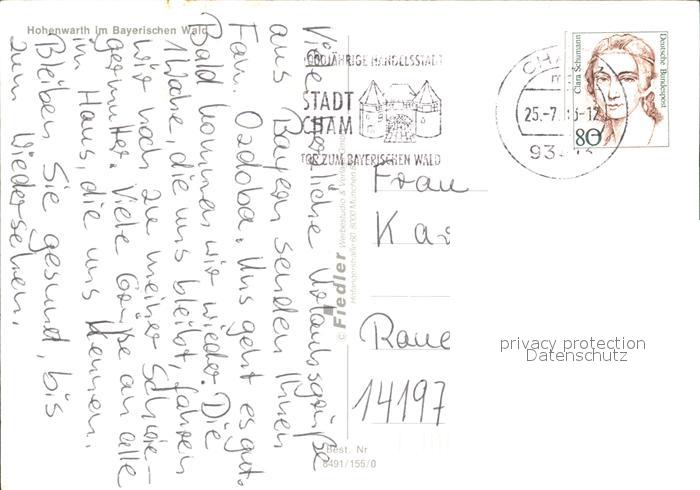 Hohenwarth im Bayerischen Wald
Viele herzliche Urlaubsgrüße
aus Bayern senden Ihnen
Fam. Ozdoba. Uns geht es gut.
Bald kommen wir wieder. Die
1 Woche, die uns bleibt, fahren
wir noch zu meiner Schwie-
germutter. Viele Grüße an alle
im Haus, die uns kennen.
Bleiben Sie gesund, bis
zum Wiedersehen.
JÄHRIGE HANDELSSTADT
STADT
CHAM
TOR ZUM BAYERISCHEN WALD
CHAM
25.-7.
-12
Clara Schumann
Deutsche Bundespost
80
© Fiedler Werbestudio & Verlag
Best. Nr
8491/155/0
Frau
Ka
Raue
14197
privacy protection
Datenschutz